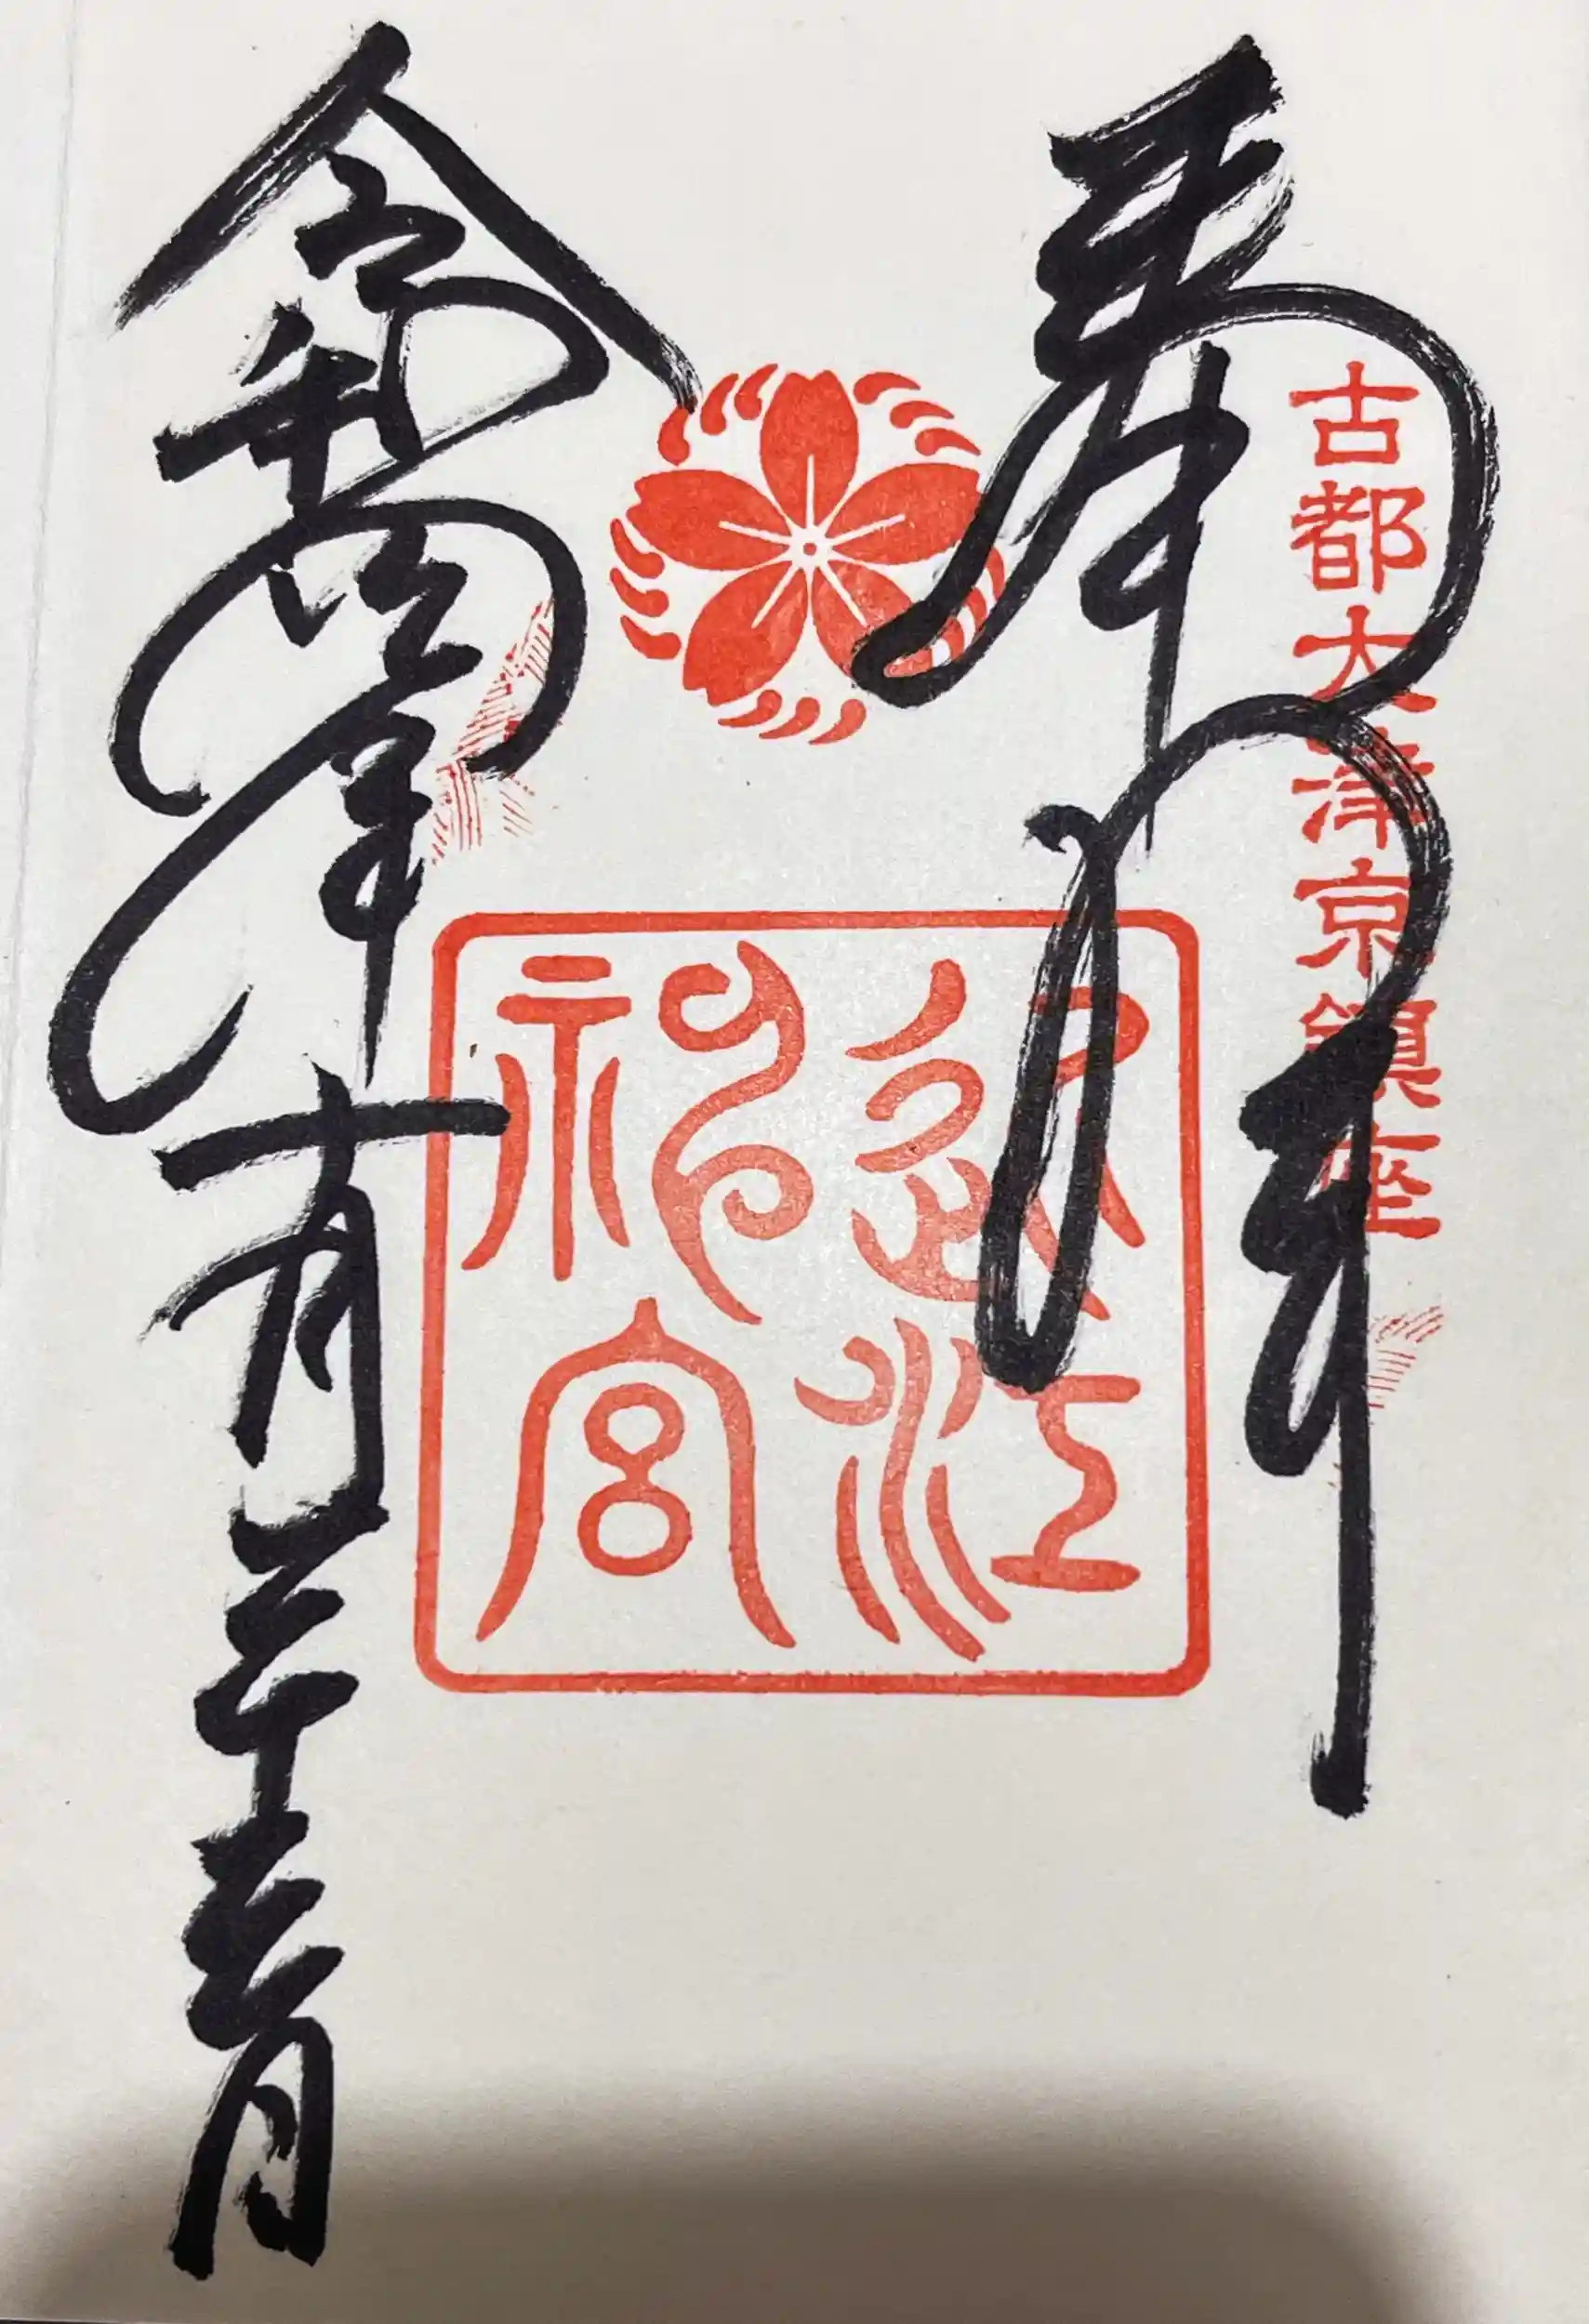 奉拝
古都大津京鎮座
近江
神宮
令和四年